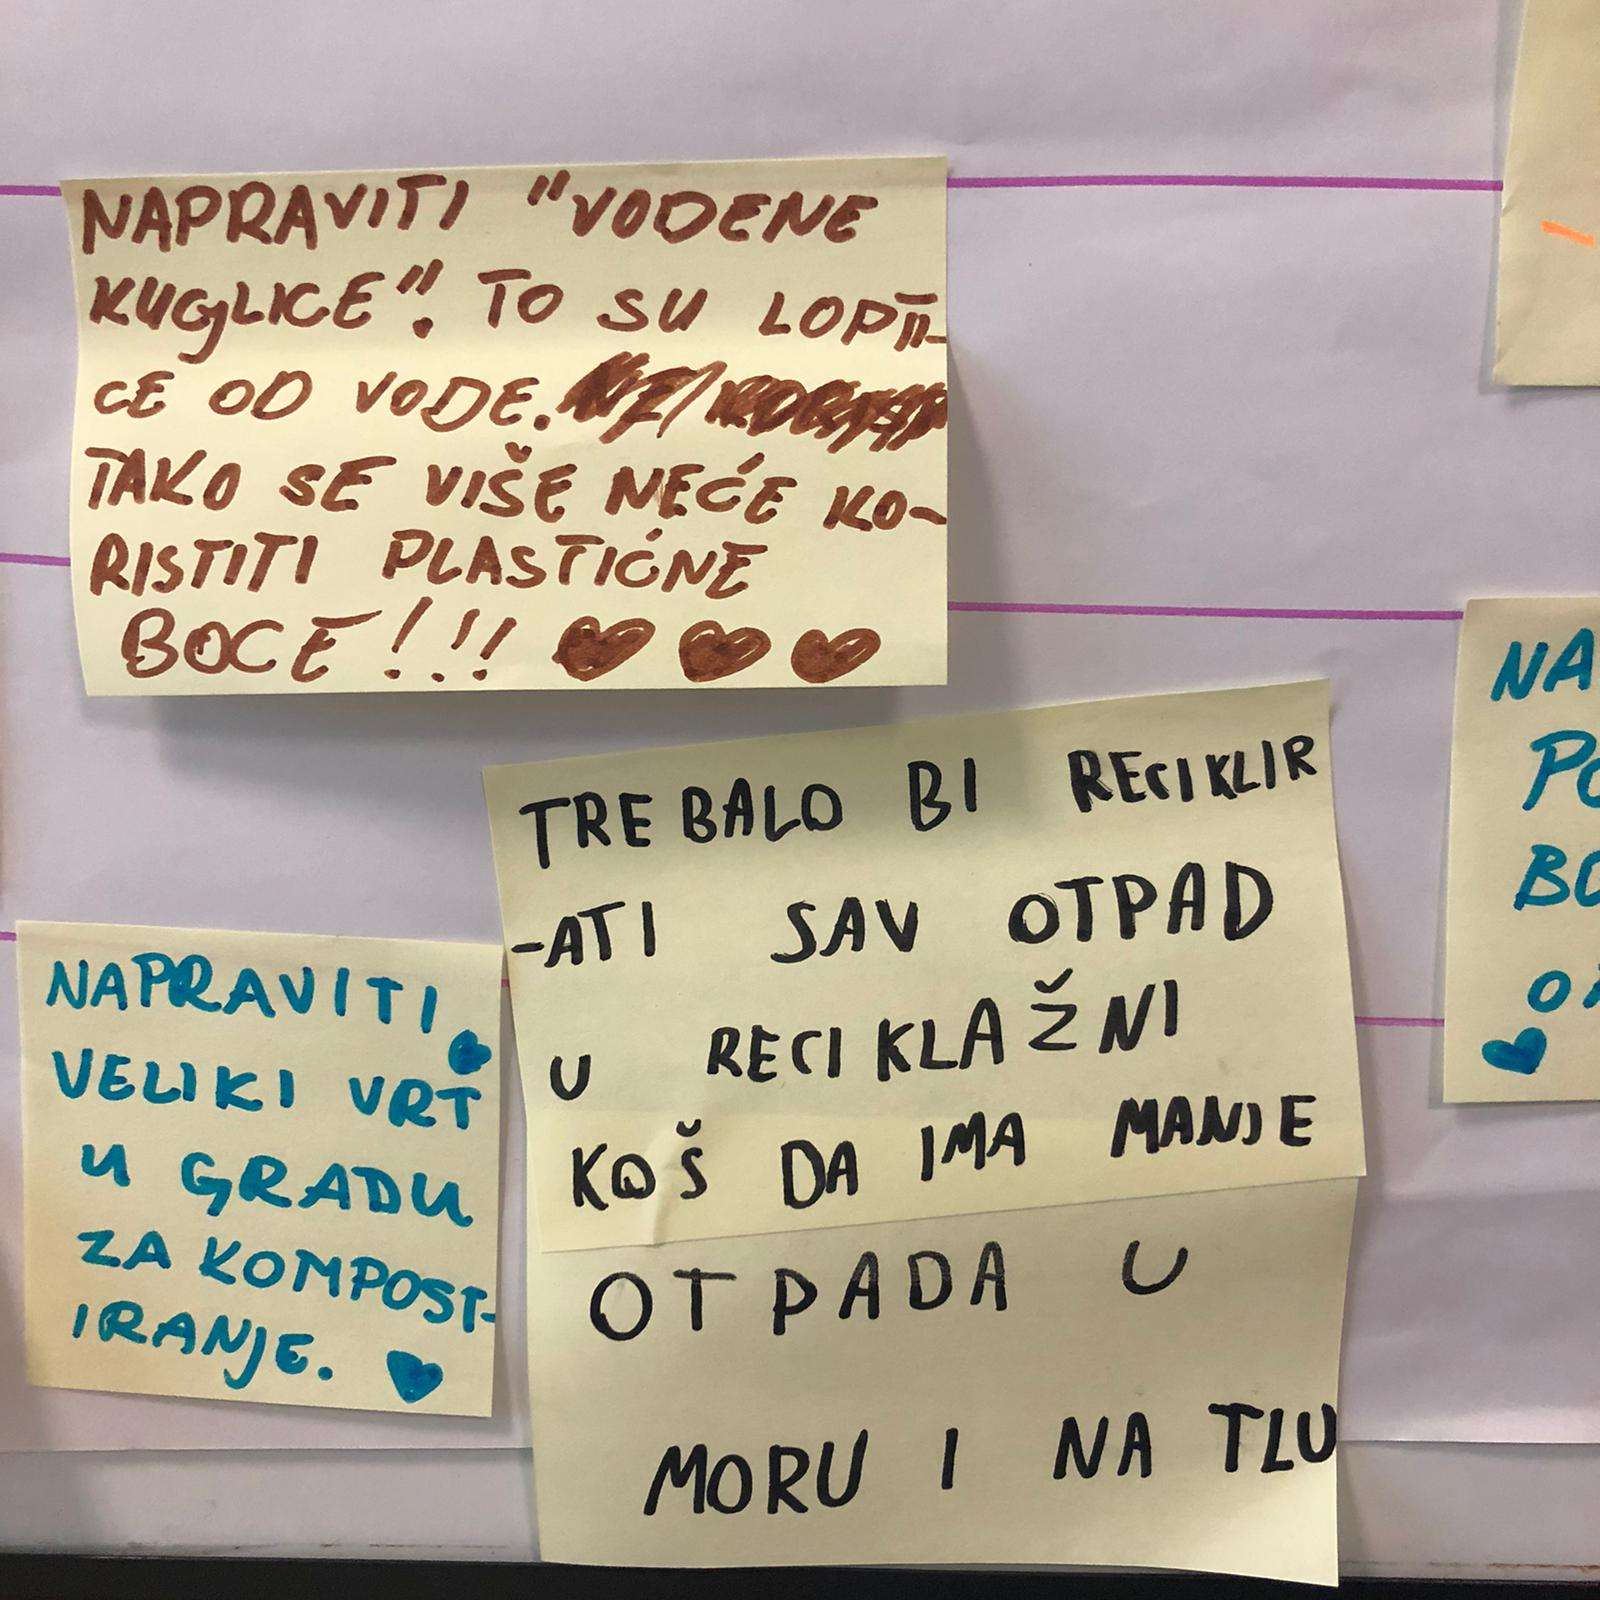 NAPRAVITI "VODENE
KUGLICE". TO SU LOPTI-
CE OD VODE.
TAKO SE VIŠE NEĆE KO-
RISTITI PLASTIĆNE
BOCE!!!
TREBALO BI RECIKLIR
-ATI SAV OTPAD
U RECIKLAŽNI
KOŠ DA IMA MANJE
OTPADA U
MORU I NA TLU
NAPRAVITI
VELIKI VRT
U GRADU
ZA KOMPOST-
IRANJE.
NA
PO
BO